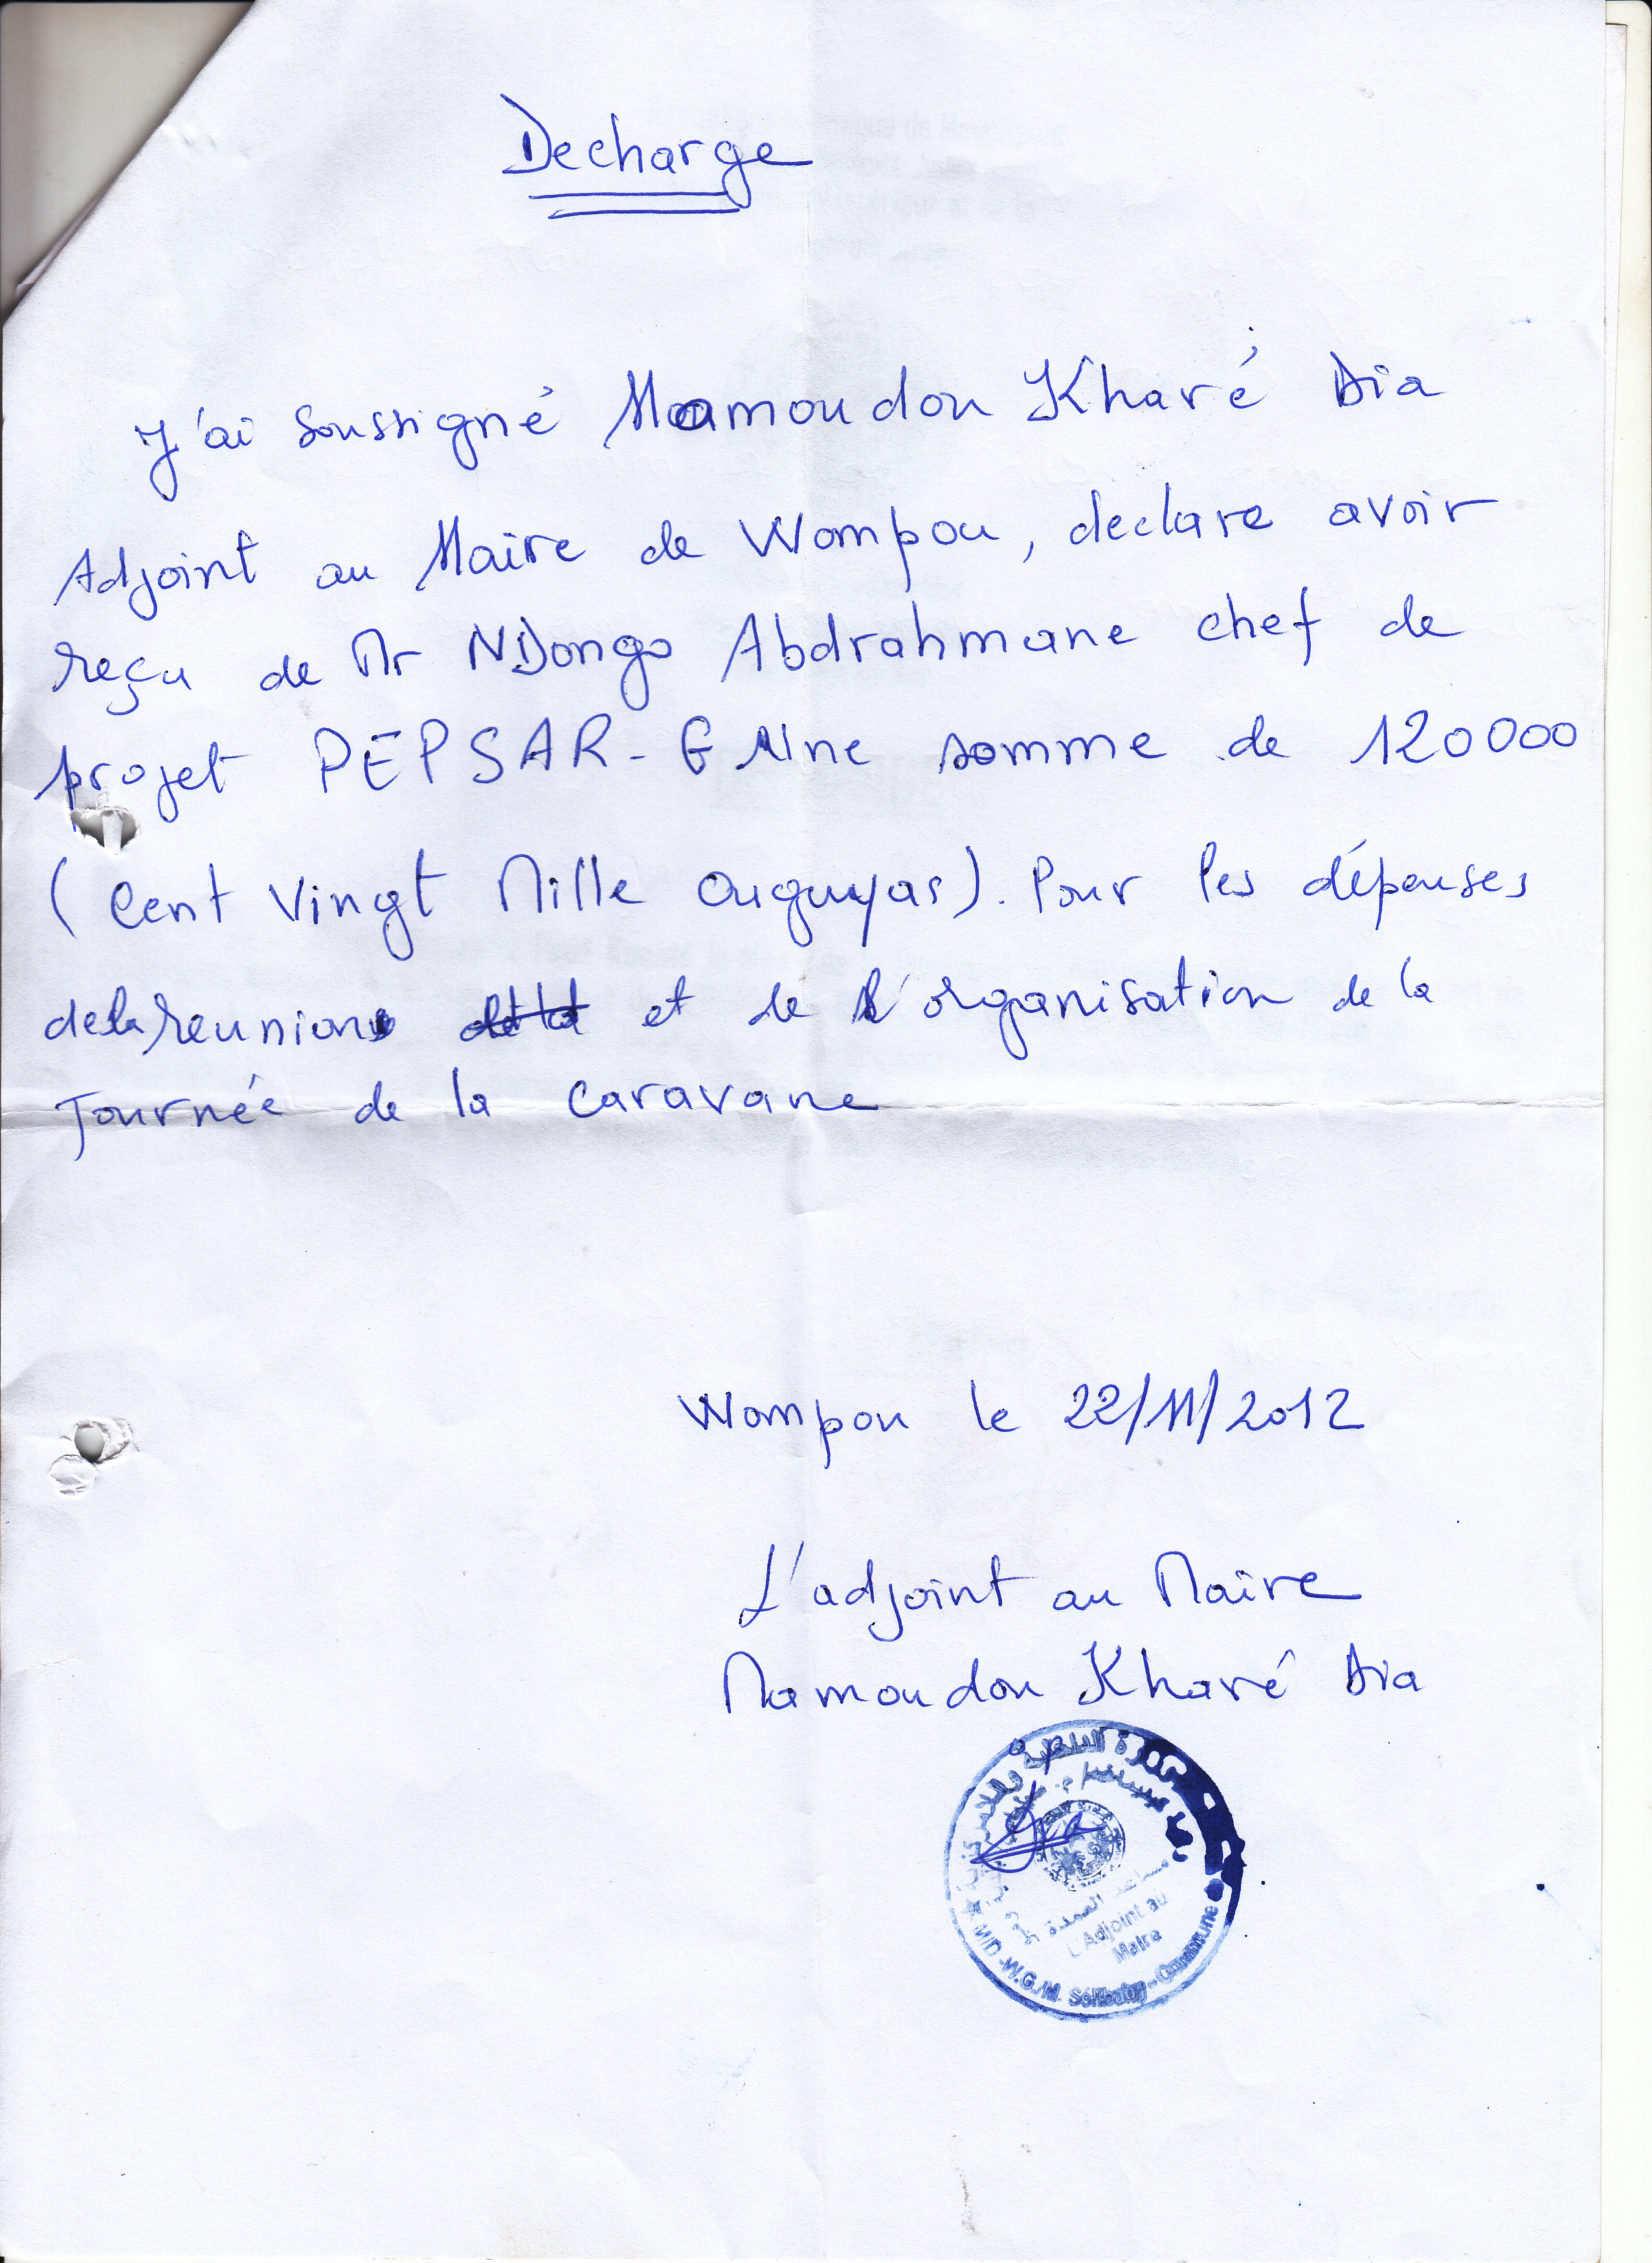 Decharge
J'ai soussigné Mamoudou Kharé Dia
Adjoint au Maire de Wompou, declare avoir
reçu de Mr NDongo Abdrahmane chef de
projet PEPSAR-G Une somme de 120000
(Cent Vingt Mille Ouguyas). Pour les dépenses
de la reunion et de l'organisation de la
Journée de la caravane
Wompou le 22/11/2012
L'adjoint au Maire
Mamoudou Kharé Dia
مساعد العمدة
L'Adjoint au
Maire
MID-W.G./M. Sélibaby-Commune